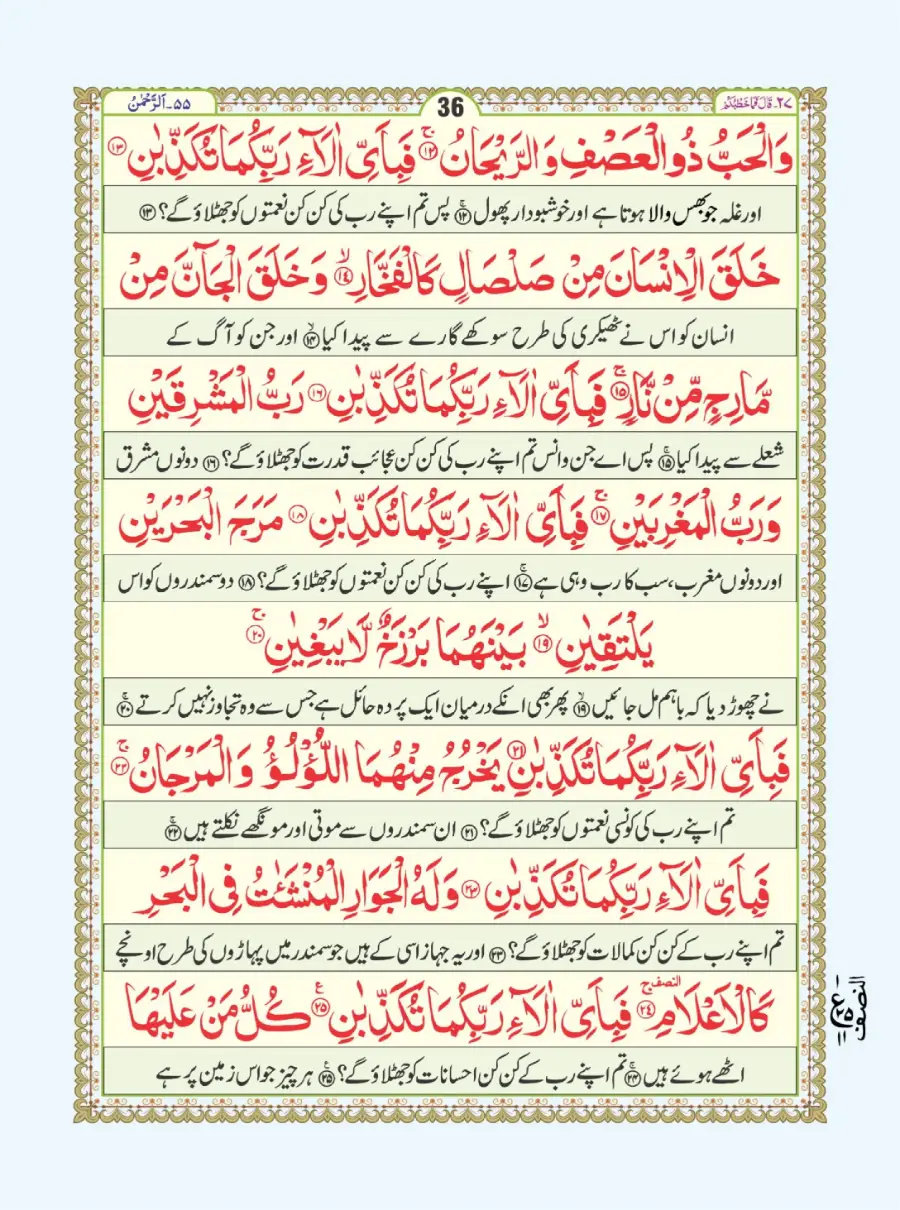 ٢٧۔ قَالَ فَمَا خَطْبُكُمْ
36
٥٥۔ اَلرَّحْمٰنُ
وَالْحَبُّ ذُو الْعَصْفِ وَالرَّيْحَانُ ۚ﴿١٢﴾ فَبِاَيِّ اٰلَآءِ رَبِّكُمَا تُكَذِّبٰنِ ﴿١٣﴾
اور غلہ جو بھس والا ہوتا ہے اور خوشبودار پھول ﴿١٢﴾ پس تم اپنے رب کی کن کن نعمتوں کو جھٹلاؤ گے؟ ﴿١٣﴾
خَلَقَ الْاِنْسَانَ مِنْ صَلْصَالٍ كَالْفَخَّارِ ۙ﴿١٤﴾ وَخَلَقَ الْجَآنَّ مِنْ
انسان کو اس نے ٹھیکری کی طرح سوکھے گارے سے پیدا کیا ﴿١٤﴾ اور جن کو آگ کے
مَّارِجٍ مِّنْ نَّارٍ ۚ﴿١٥﴾ فَبِاَيِّ اٰلَآءِ رَبِّكُمَا تُكَذِّبٰنِ ﴿١٦﴾ رَبُّ الْمَشْرِقَيْنِ
شعلے سے پیدا کیا ﴿١٥﴾ پس اے جن و انس تم اپنے رب کی کن کن عجائب قدرت کو جھٹلاؤ گے؟ ﴿١٦﴾ دونوں مشرق
وَرَبُّ الْمَغْرِبَيْنِ ۚ﴿١٧﴾ فَبِاَيِّ اٰلَآءِ رَبِّكُمَا تُكَذِّبٰنِ ﴿١٨﴾ مَرَجَ الْبَحْرَيْنِ
اور دونوں مغرب، سب کا رب وہی ہے ﴿١٧﴾ اپنے رب کی کن کن نعمتوں کو جھٹلاؤ گے؟ ﴿١٨﴾ دو سمندروں کو اس
يَلْتَقِيٰنِ ۙ﴿١٩﴾ بَيْنَهُمَا بَرْزَخٌ لَّا يَبْغِيٰنِ ۚ﴿٢٠﴾
نے چھوڑ دیا کہ باہم مل جائیں ﴿١٩﴾ پھر بھی انکے درمیان ایک پردہ حائل ہے جس سے وہ تجاوز نہیں کرتے ﴿٢٠﴾
فَبِاَيِّ اٰلَآءِ رَبِّكُمَا تُكَذِّبٰنِ ﴿٢١﴾ يَخْرُجُ مِنْهُمَا اللُّؤْلُؤُ وَالْمَرْجَانُ ۚ﴿٢٢﴾
تم اپنے رب کی کونسی نعمتوں کو جھٹلاؤ گے؟ ﴿٢١﴾ ان سمندروں سے موتی اور مونگھے نکلتے ہیں ﴿٢٢﴾
فَبِاَيِّ اٰلَآءِ رَبِّكُمَا تُكَذِّبٰنِ ﴿٢٣﴾ وَلَهُ الْجَوَارِ الْمُنْشَـٰٔتُ فِي الْبَحْرِ
تم اپنے رب کے کن کن کمالات کو جھٹلاؤ گے؟ ﴿٢٣﴾ اور یہ جہاز اسی کے ہیں جو سمندر میں پہاڑوں کی طرح اونچے
كَالْاَعْلَامِ ۚ﴿٢٤﴾ النصف فَبِاَيِّ اٰلَآءِ رَبِّكُمَا تُكَذِّبٰنِ ﴿٢٥﴾ۧ كُلُّ مَنْ عَلَيْهَا
اٹھے ہوئے ہیں ﴿٢٤﴾ تم اپنے رب کے کن کن احسانات کو جھٹلاؤ گے؟ ﴿٢٥﴾ ہر چیز جو اس زمین پر ہے
النصف
ع ٢٥